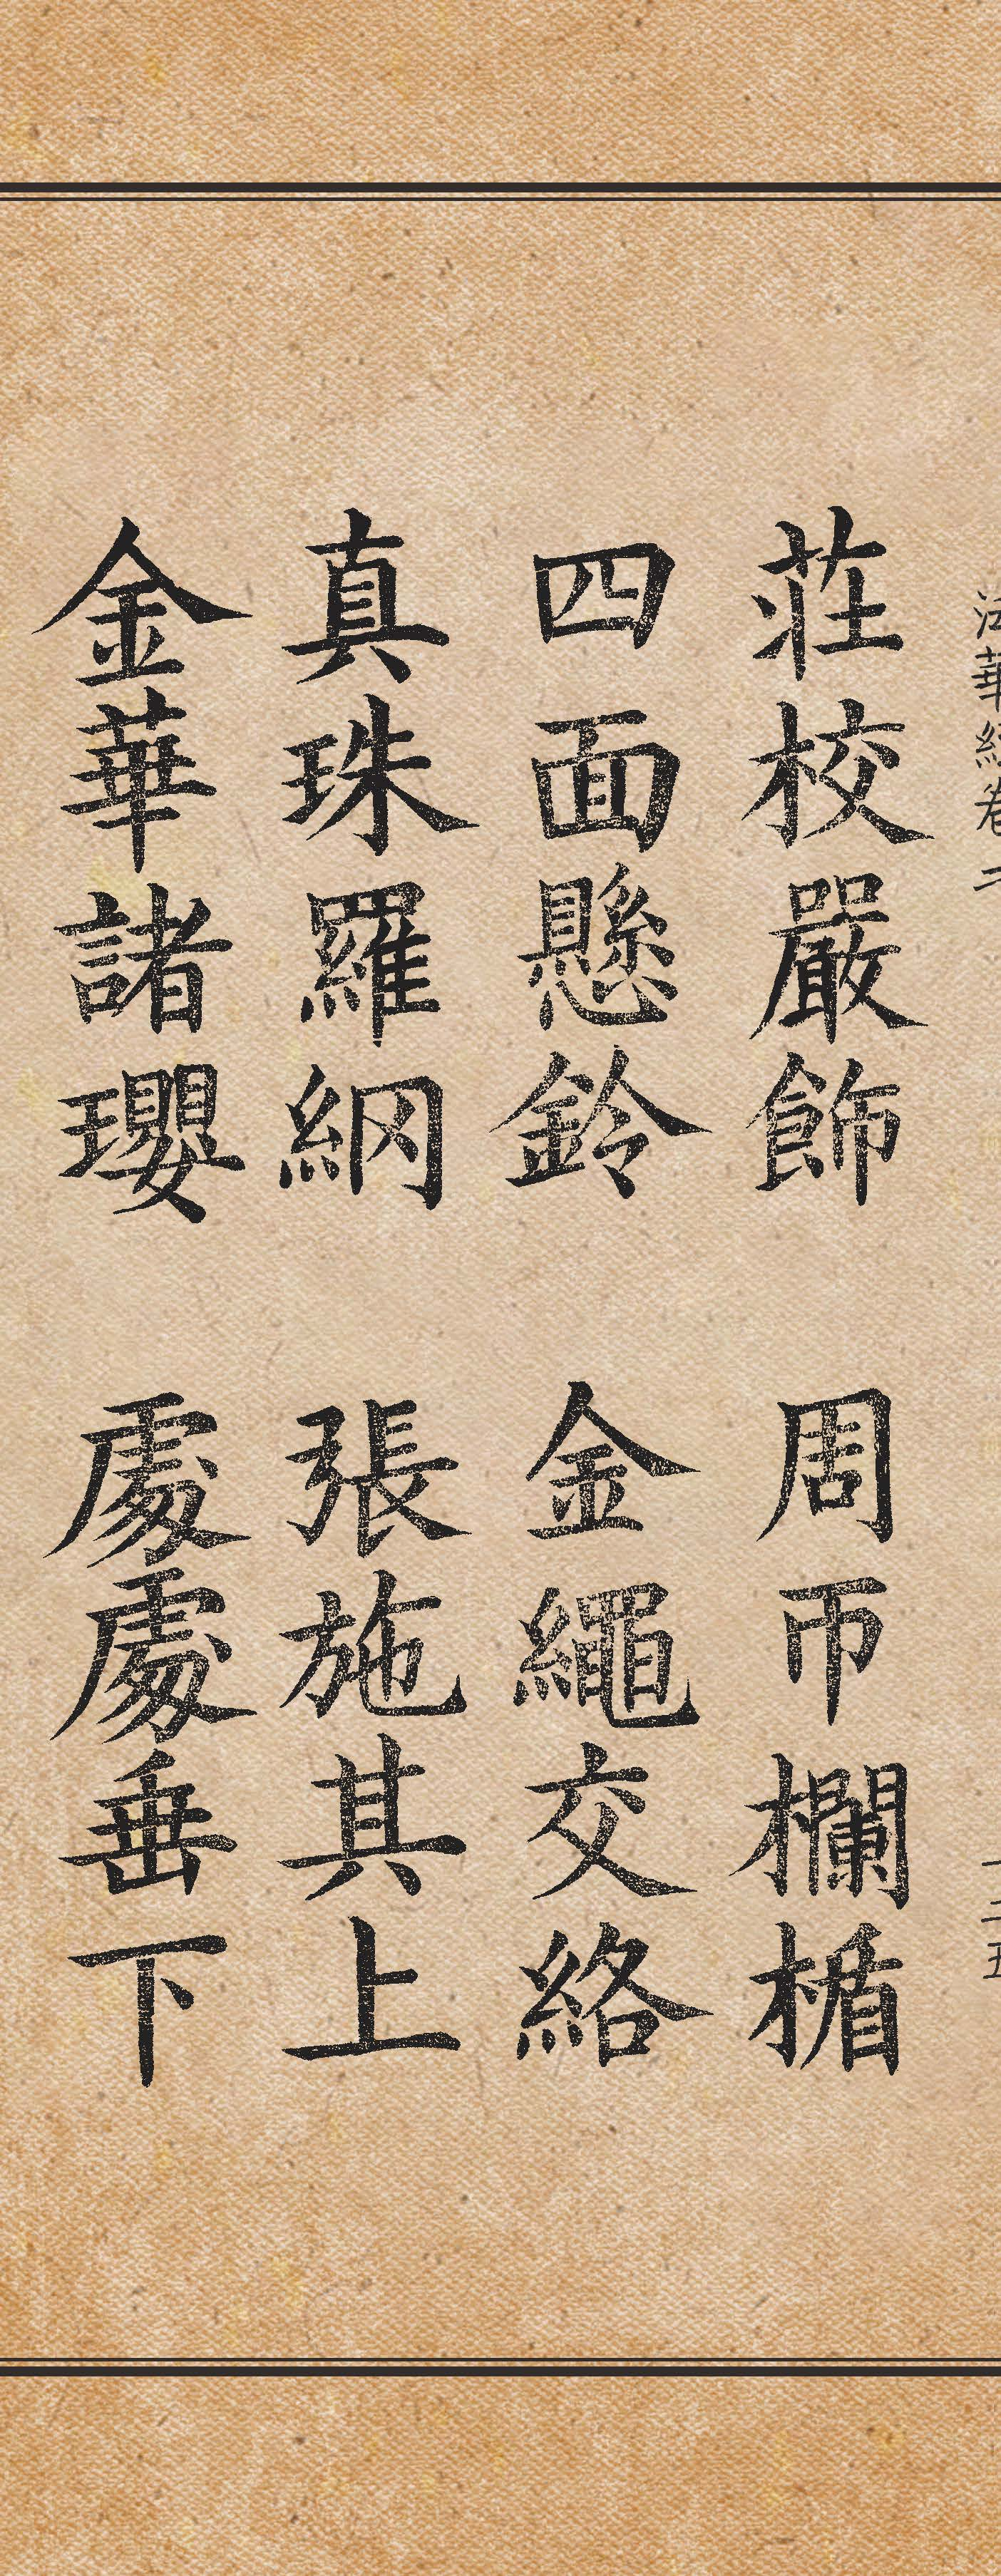 法華經卷二
一二五
莊校嚴飾 周帀欄楯
四面懸鈴 金繩交絡
真珠羅網 張施其上
金華諸瓔 處處垂下